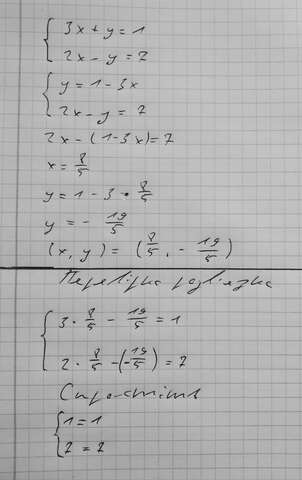 3x + y = 1
2x - y = 7
y = 1 - 3x
2x - y = 7
2x - (1 - 3x) = 7
x = 8/5
y = 1 - 3 · 8/5
y = - 19/5
(x, y) = (8/5, - 19/5)
Перевірка розв'язка
3 · 8/5 - 19/5 = 1
2 · 8/5 - (-19/5) = 7
Спростить
1 = 1
7 = 7